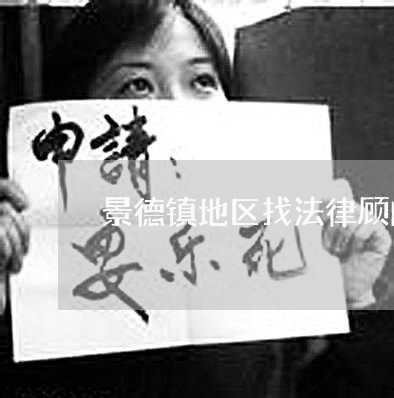 申請：
景德镇地区找法律顾
安乐死